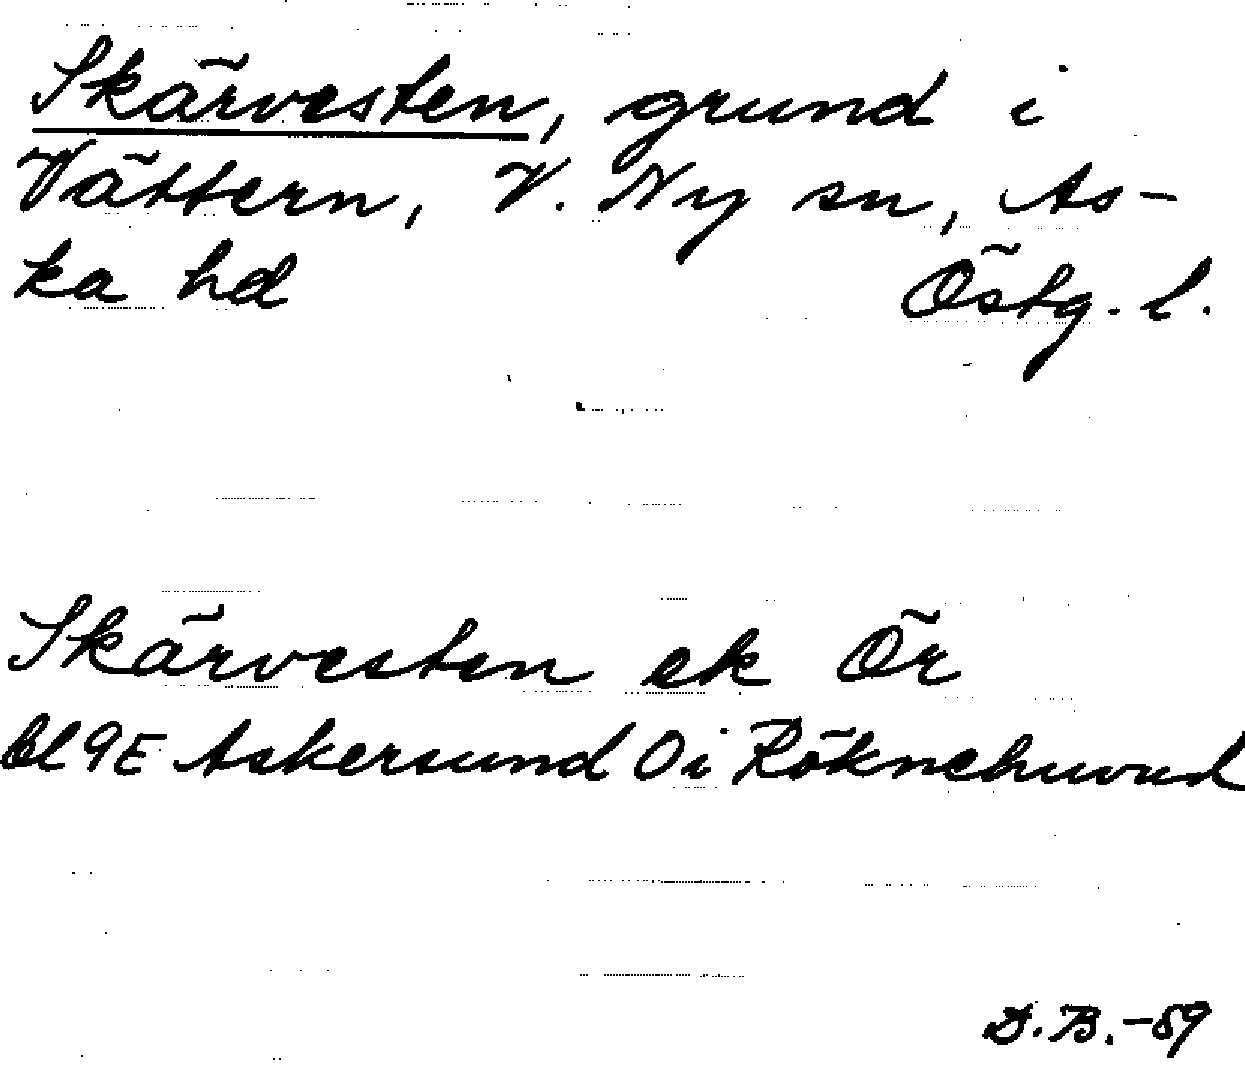 Skärvesten, grund i
Vättern, V. Ny sn, As-
ka hd Östg. l.
Skärvesten ek Ör
bl 9E Askersund 0 i Röknehuvud
D.B.-59